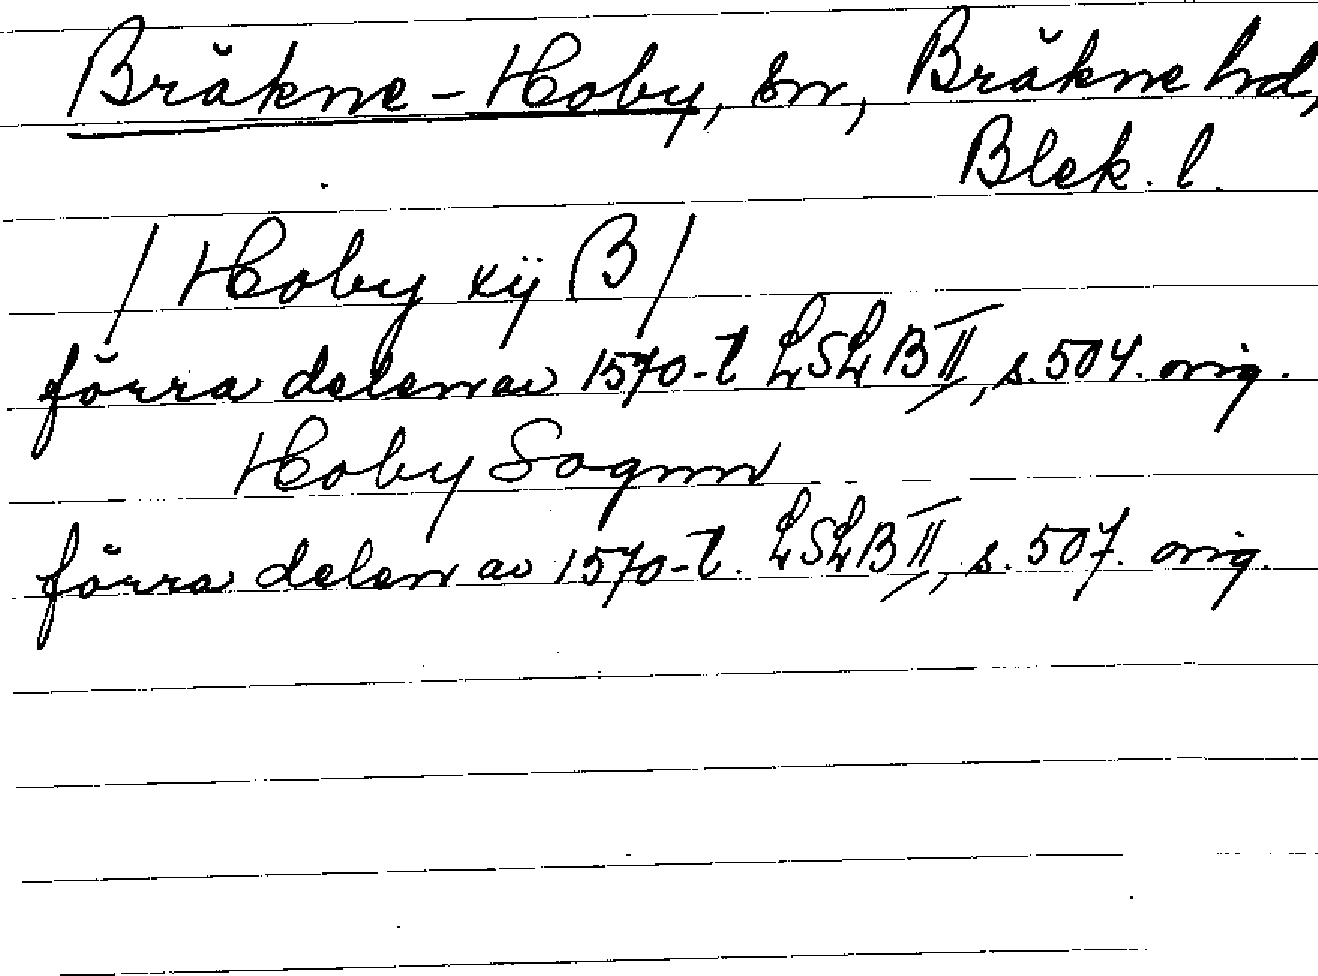 Bräkne-Hoby, sn, Bräkne hd,
Blek. l.
/ Hoby xij B /
förra delen av 1570-t LSLB II, s. 504. orig.
Hoby Sognn
förra delen av 1570-t. LSLB II, s. 507. orig.